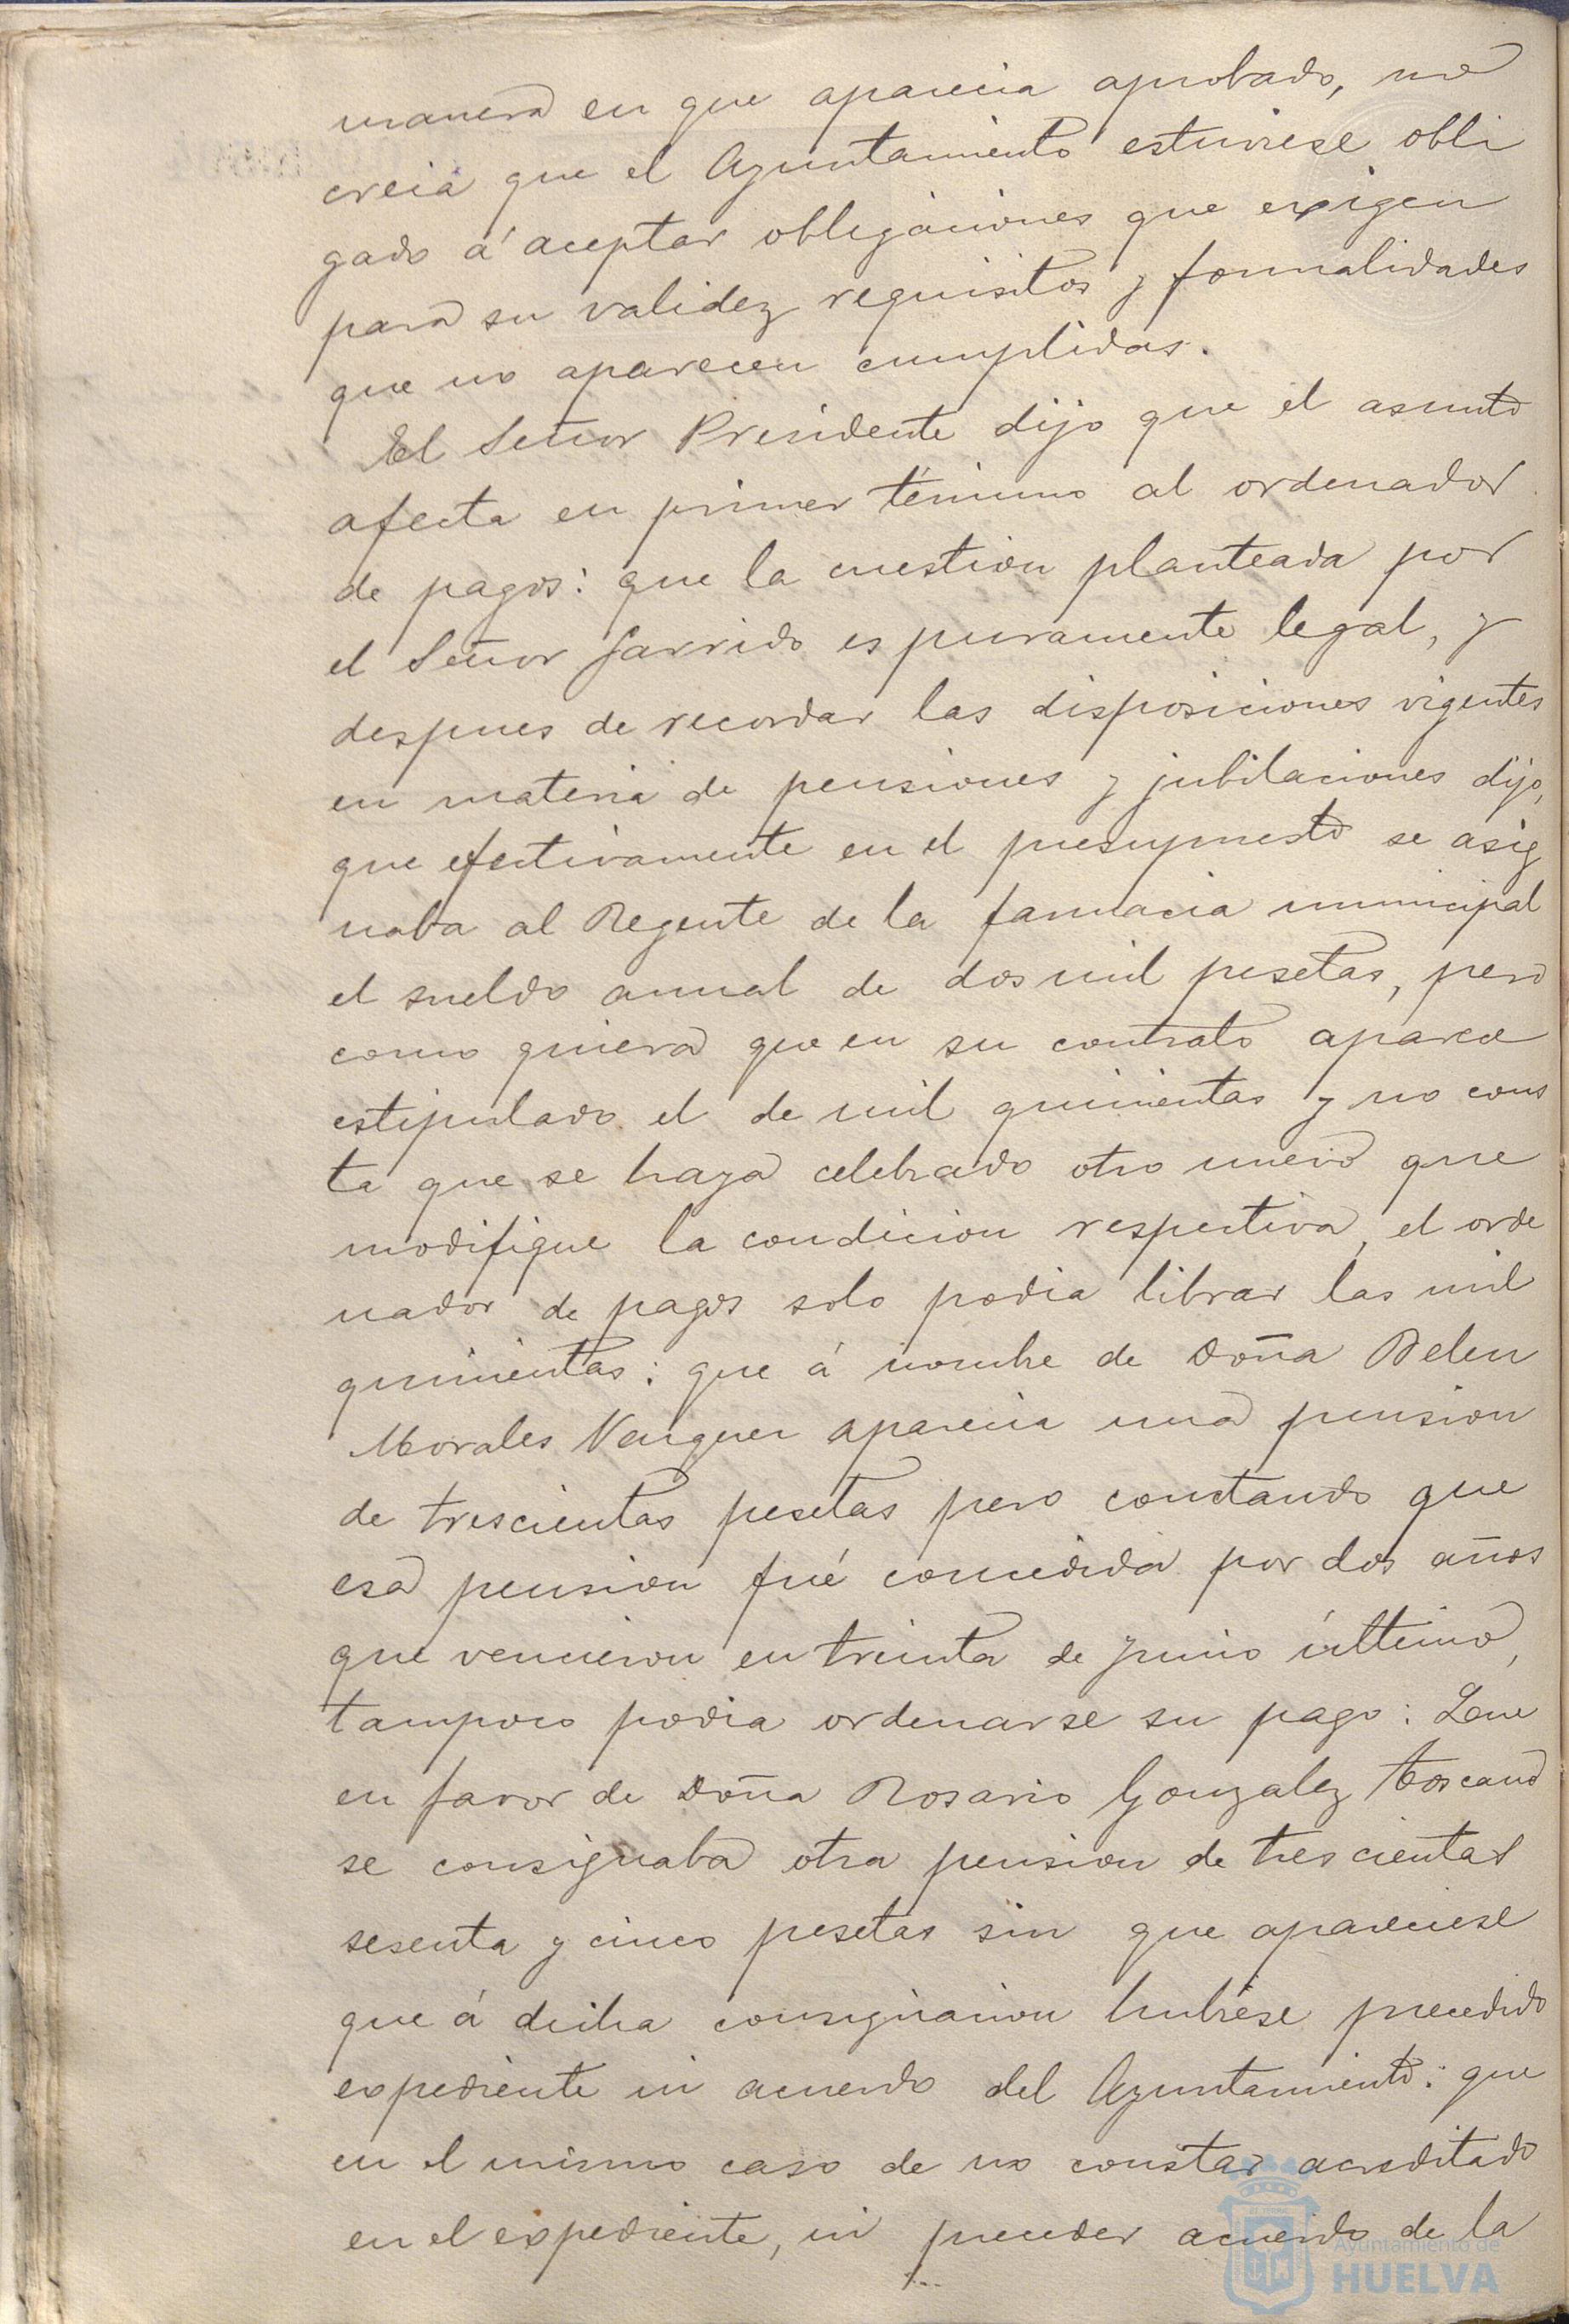 manera en que aparecia aprobado, no
creia que el Ayuntamiento estuviese obli
gado á aceptar obligaciones que exigen
para su validez requisitos y formalidades
que no aparecen cumplidas.
El Señor Presidente dijo que el asunto
afecta en primer término al ordenador
de pagos: que la cuestion planteada por
el Señor Garrido es puramente legal, y
despues de recordar las disposiciones vigentes
en materia de pensiones y jubilaciones dijo,
que efectivamente en el presupuesto se asig
naba al Regente de la farmacia municipal
el sueldo anual de dos mil pesetas, pero
como quiera que en su contrato aparece
estipulado el de mil quinientas y no cons
ta que se haya celebrado otro nuevo que
modifique la condicion respectiva, el orde
nador de pagos solo podia librar las mil
quinientas: que á nombre de Doña Belen
Morales aparecia una pension
de trescientas pesetas pero constando que
esa pension fué concedida por dos años
que vencieron en treinta de Junio último,
tampoco podia ordenarse su pago: Que
en favor de Doña Rosario Gonzalez Toscano
se consignaba otra pension de trescientas
sesenta y cinco pesetas sin que apareciese
que á dicha consignacion hubiese precedido
expediente ni acuerdo del Ayuntamiento: que
en el mismo caso de no constar acreditado
en el expediente, ni preceder acuerdo de la
Ayuntamiento de
HUELVA